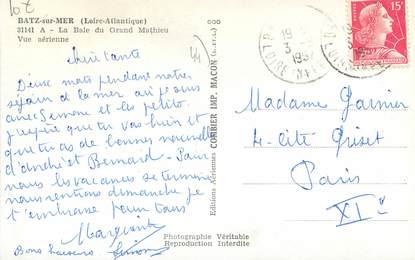 10 €
BATZ-sur-MER (Loire-Atlantique)
31141 A - La Baie du Grand Mathieu
Vue aérienne
Chère tante
Deux mots pendant notre
séjour à la mer ai joués
avec Simone et les petits.
J'espère que tu vas bien et
que tu as de bonnes nouvelles
d'André et Bernard - Pour
nous les vacances se terminent
nous rentrons dimanche je
t'embrasse pour tous
Marguerite
Bons baisers Simone
Editions Aériennes COMBIER IMP. MACON
19
3
15F
Madame Garnier
4 - Cité Griset
Paris
XIe
Photographie Véritable
Reproduction Interdite